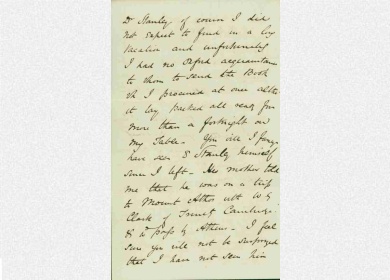 Dr Stanley of course I did
not expect to find in a long
Vacation and unfortunately
I had no Oxford acquaintance
to whom to send the Book
wh I procured at once altho
it lay packed all ready for
more than a fortnight on
my Table. You will I fancy
have seen E Stanley himself
since I left. His mother told
me that he was on a trip
to Mount Athos wt W G
Clark of Trinity Cambridge
& by Athens. I feel
sure you will not be surprised
that I have not seen him